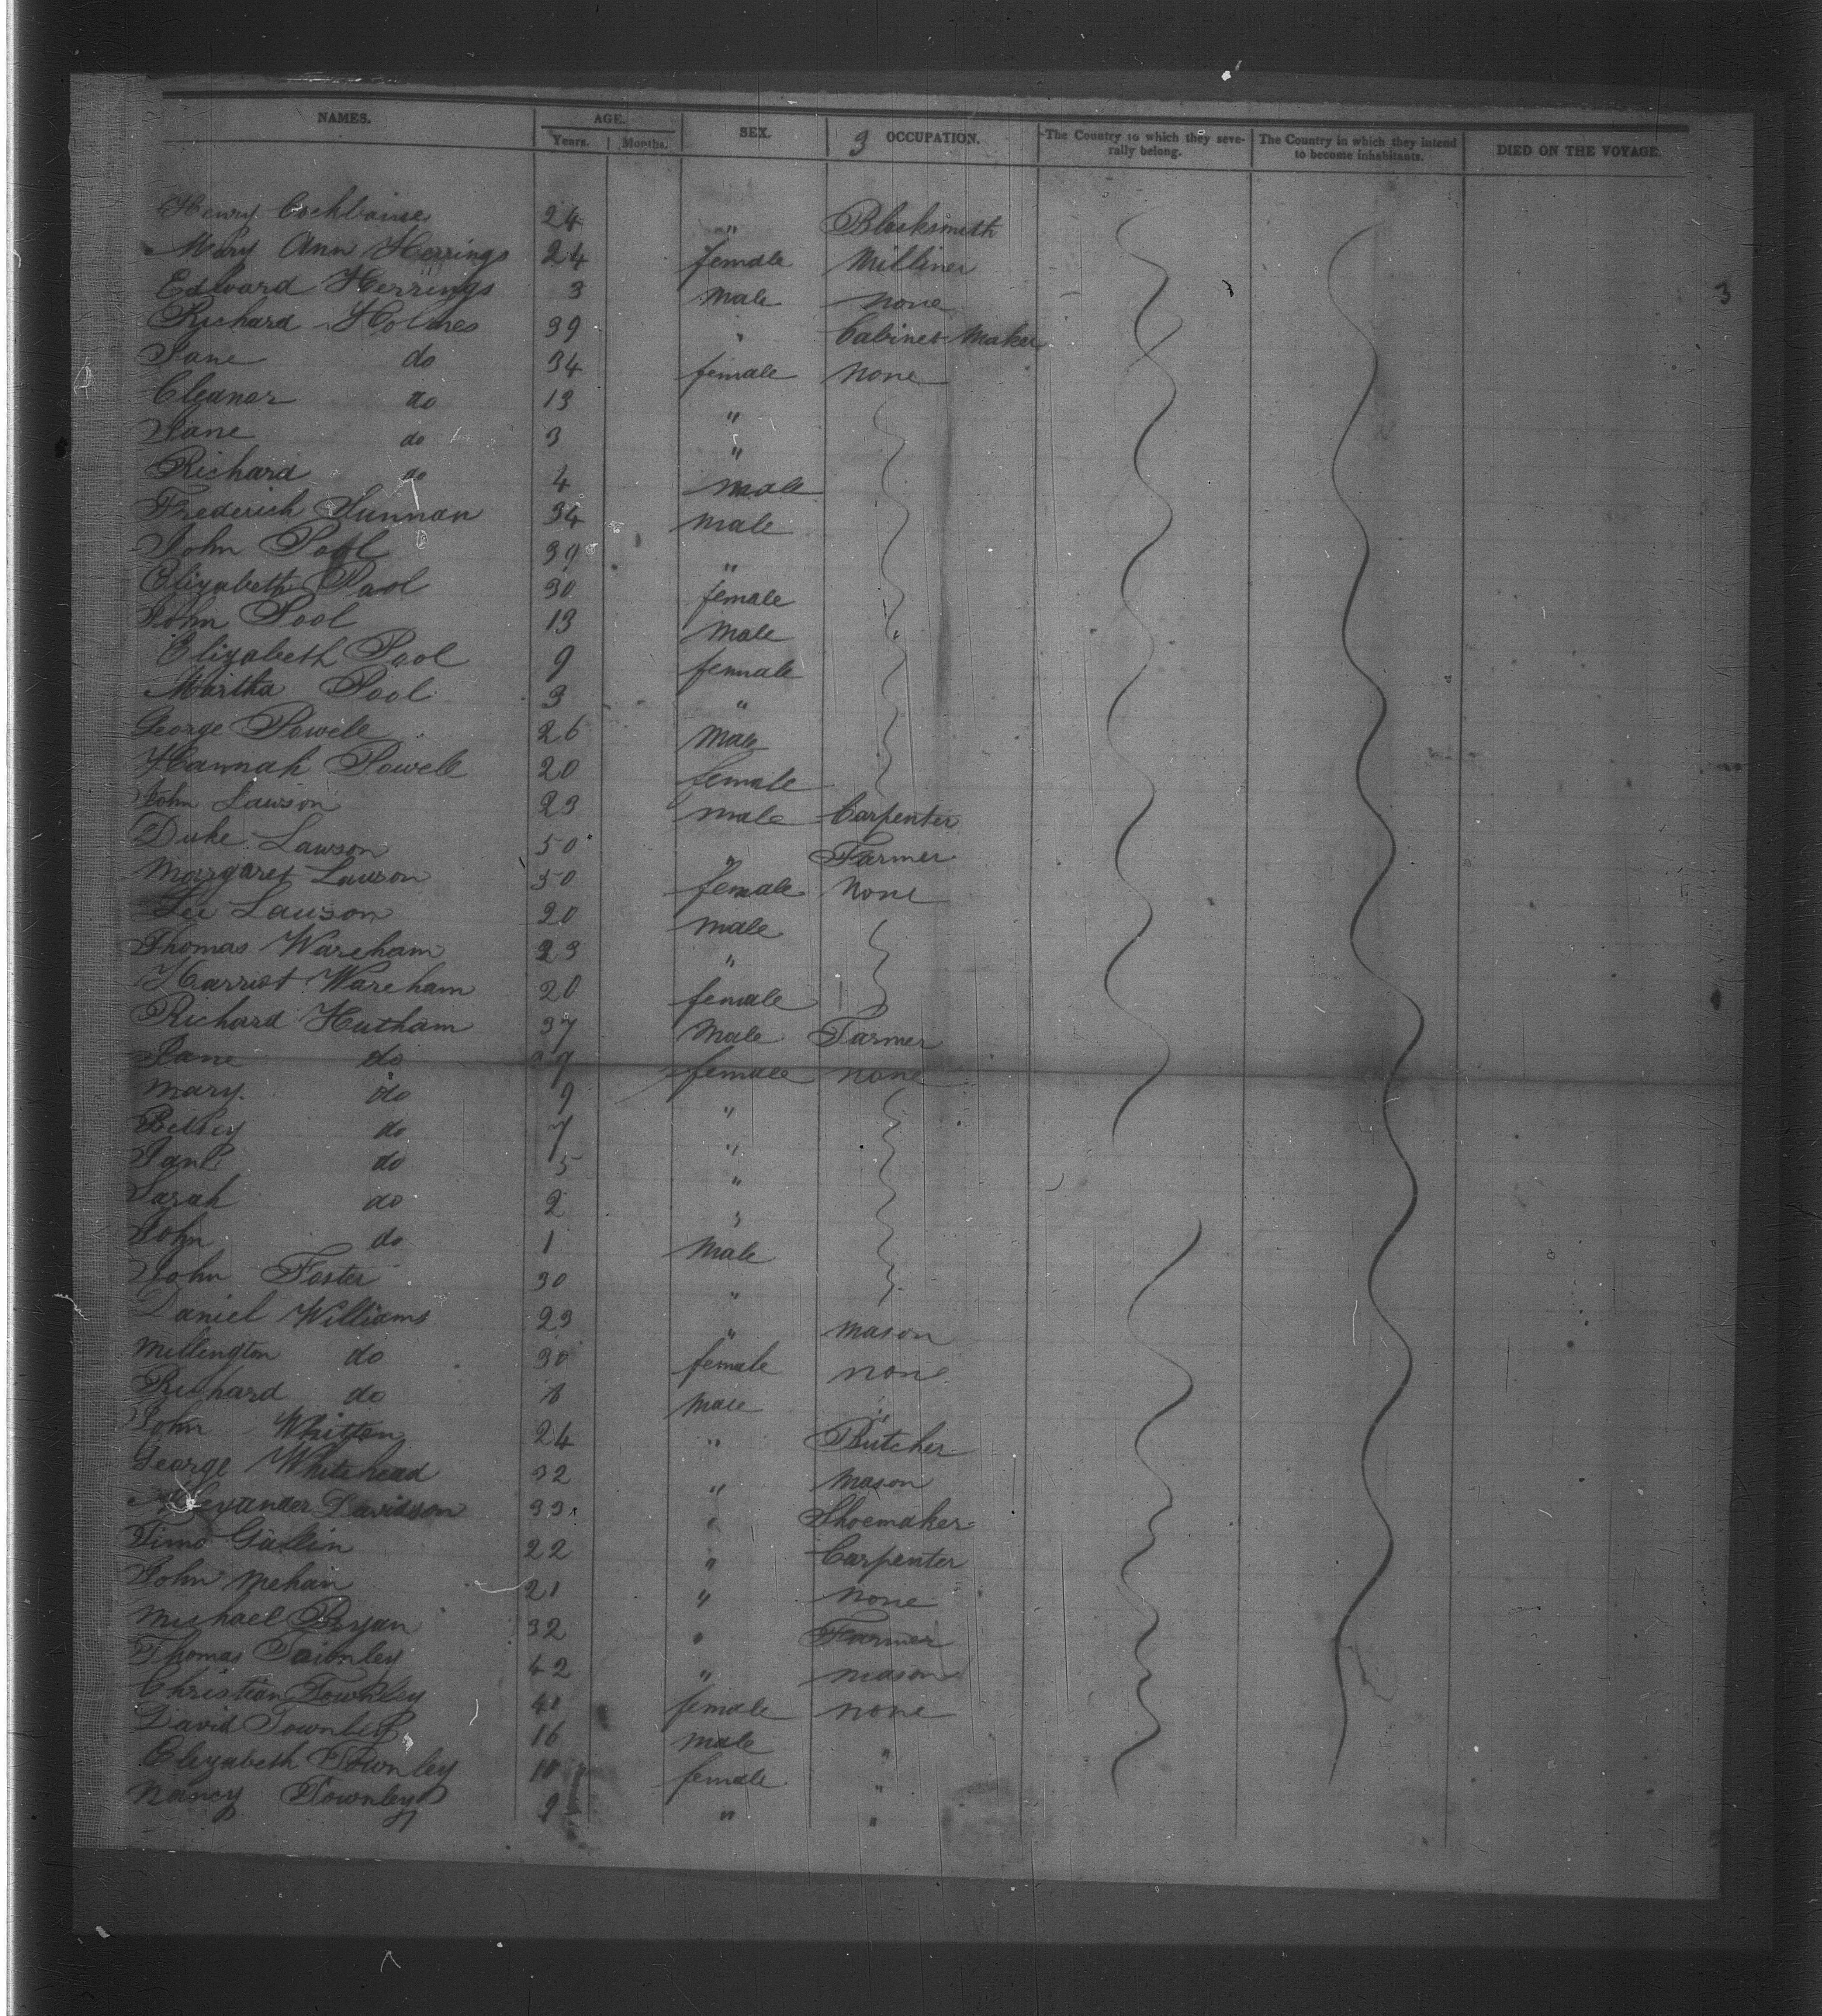 NAMES. AGE. SEX. 3 OCCUPATION. The Country to which they severally belong. The Country in which they intend to become inhabitants. DIED ON THE VOYAGE.
Years. Months.
3
Henry Cockbaine 24 " Blacksmith
Mary Ann Herrings 24 female Milliner
Edward Herrings 3 male none
Richard Holmes 39 " Cabinet Maker
Jane do 34 female none
Eleanor do 13 "
Jane do 3 "
Richard do 4 male
Frederich 34 male
John Pool 39 "
Elizabeth Pool 30 female
John Pool 13 male
Elizabeth Pool 9 female
Martha Pool 3 "
George Powell 26 male
Hannah Powell 20 female
John Lawson 23 male Carpenter
Duke Lawson 50 " Farmer
Margaret Lawson 50 female none
Lee Lawson 20 male
Thomas Wareham 23 "
Harriot Wareham 20 female
Richard Hutham 37 male Farmer
Jane do female none
Mary. do 9 "
Betsey do 7 "
Jane do 5 "
Sarah do 2 "
John do 1 male
John Foster 30 "
Daniel Williams 23 " mason
Millington do 30 female none
Richard do male "
John Whitten 24 " Butcher
George Whitehead 32 " mason
Alexander Davidson 33 " Shoemaker
Timo Gallin 22 " Carpenter
John Mehan 21 " none
Michael Bryan 32 " Farmer
Thomas Townley 42 " mason
Christian Townley 41 female none
David Townley 16 male "
Elizabeth Townley 11 female "
Nancy Townley 9 " "